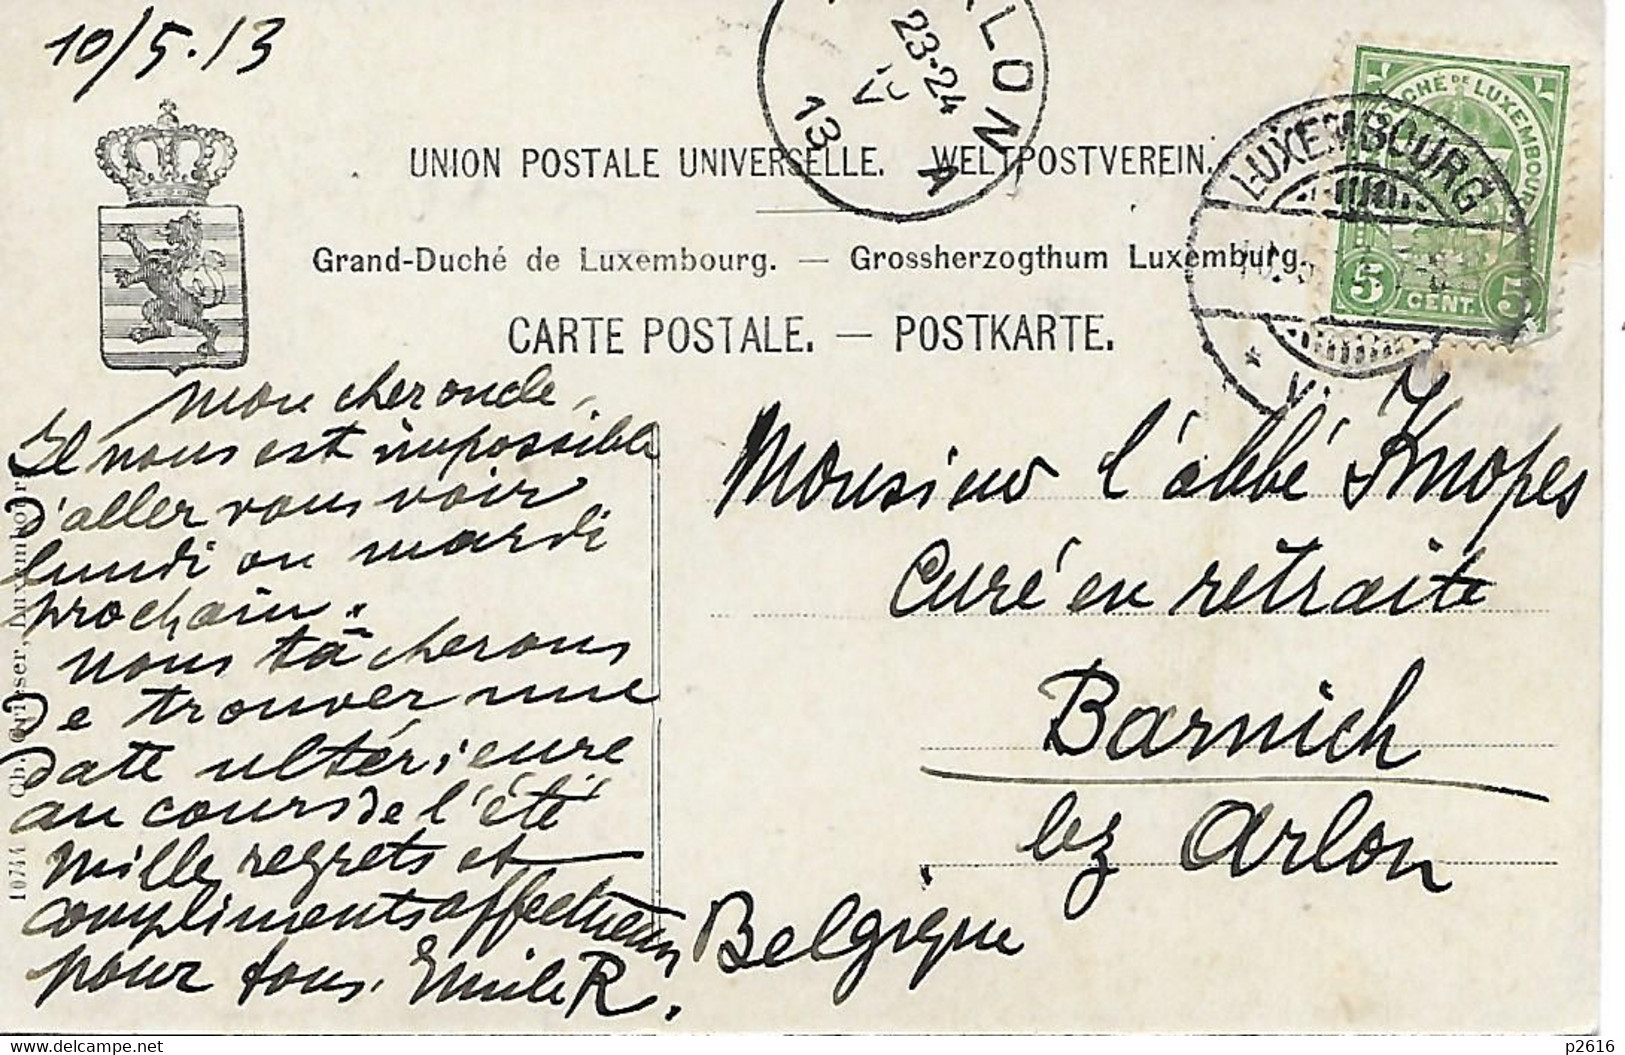 10/5.13
ARLON
23-24
10 V
13
A
UNION POSTALE UNIVERSELLE. WELTPOSTVEREIN.
Grand-Duché de Luxembourg. — Grossherzogthum Luxemburg.
CARTE POSTALE. — POSTKARTE.
GRAND DUCHÉ DE LUXEMBOURG
5 CENT. 5
LUXEMBOURG
* V.
mon cher oncle,
Il nous est impossible
d'aller vous voir
lundi ou mardi
prochain.
nous tâcherons
de trouver une
date ultérieure
au cours de l'été
mille regrets et
compliments affectueux
pour tous. Emile R.
Monsieur l'abbé Knopes
Curé en retraite
Barnich
lez Arlon
Belgique
10744 Ch. Grieser, Luxembourg
delcampe.net
p2616